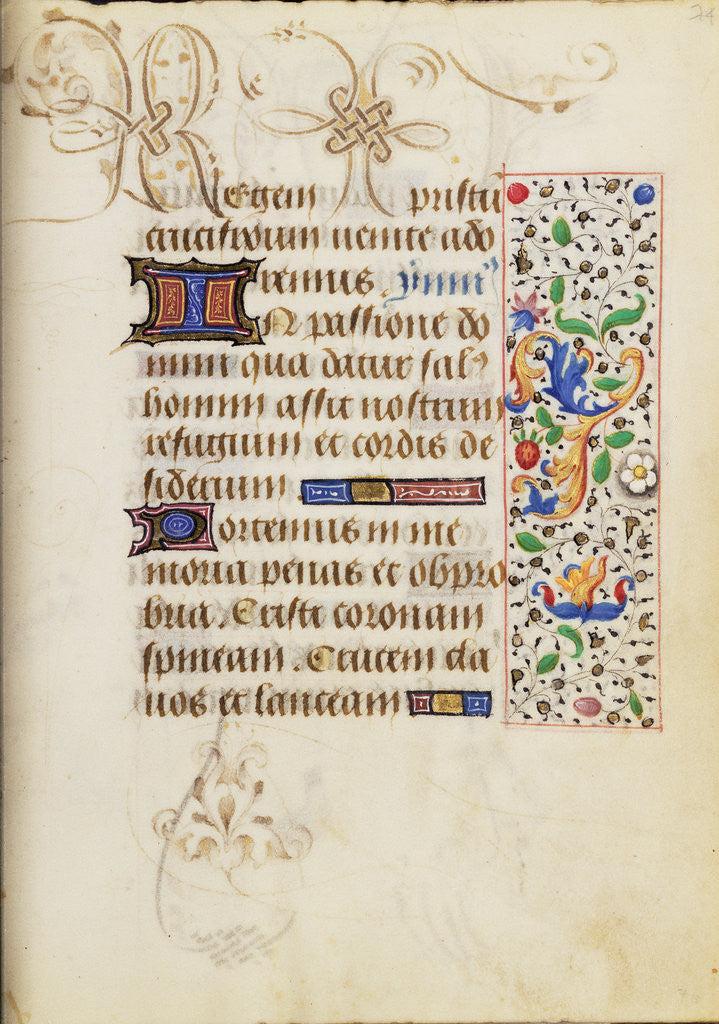 74
Regem xpristū
crucifixum uenite ado
remus. ymn9
IN passione do
mini qua datur sal9
homini assit nostrum
refugium et cordis de
siderium
Portemus in me
moria penas et obpro
bria. Cristi coronam
spineam. Crucem cla
uos et lanceam